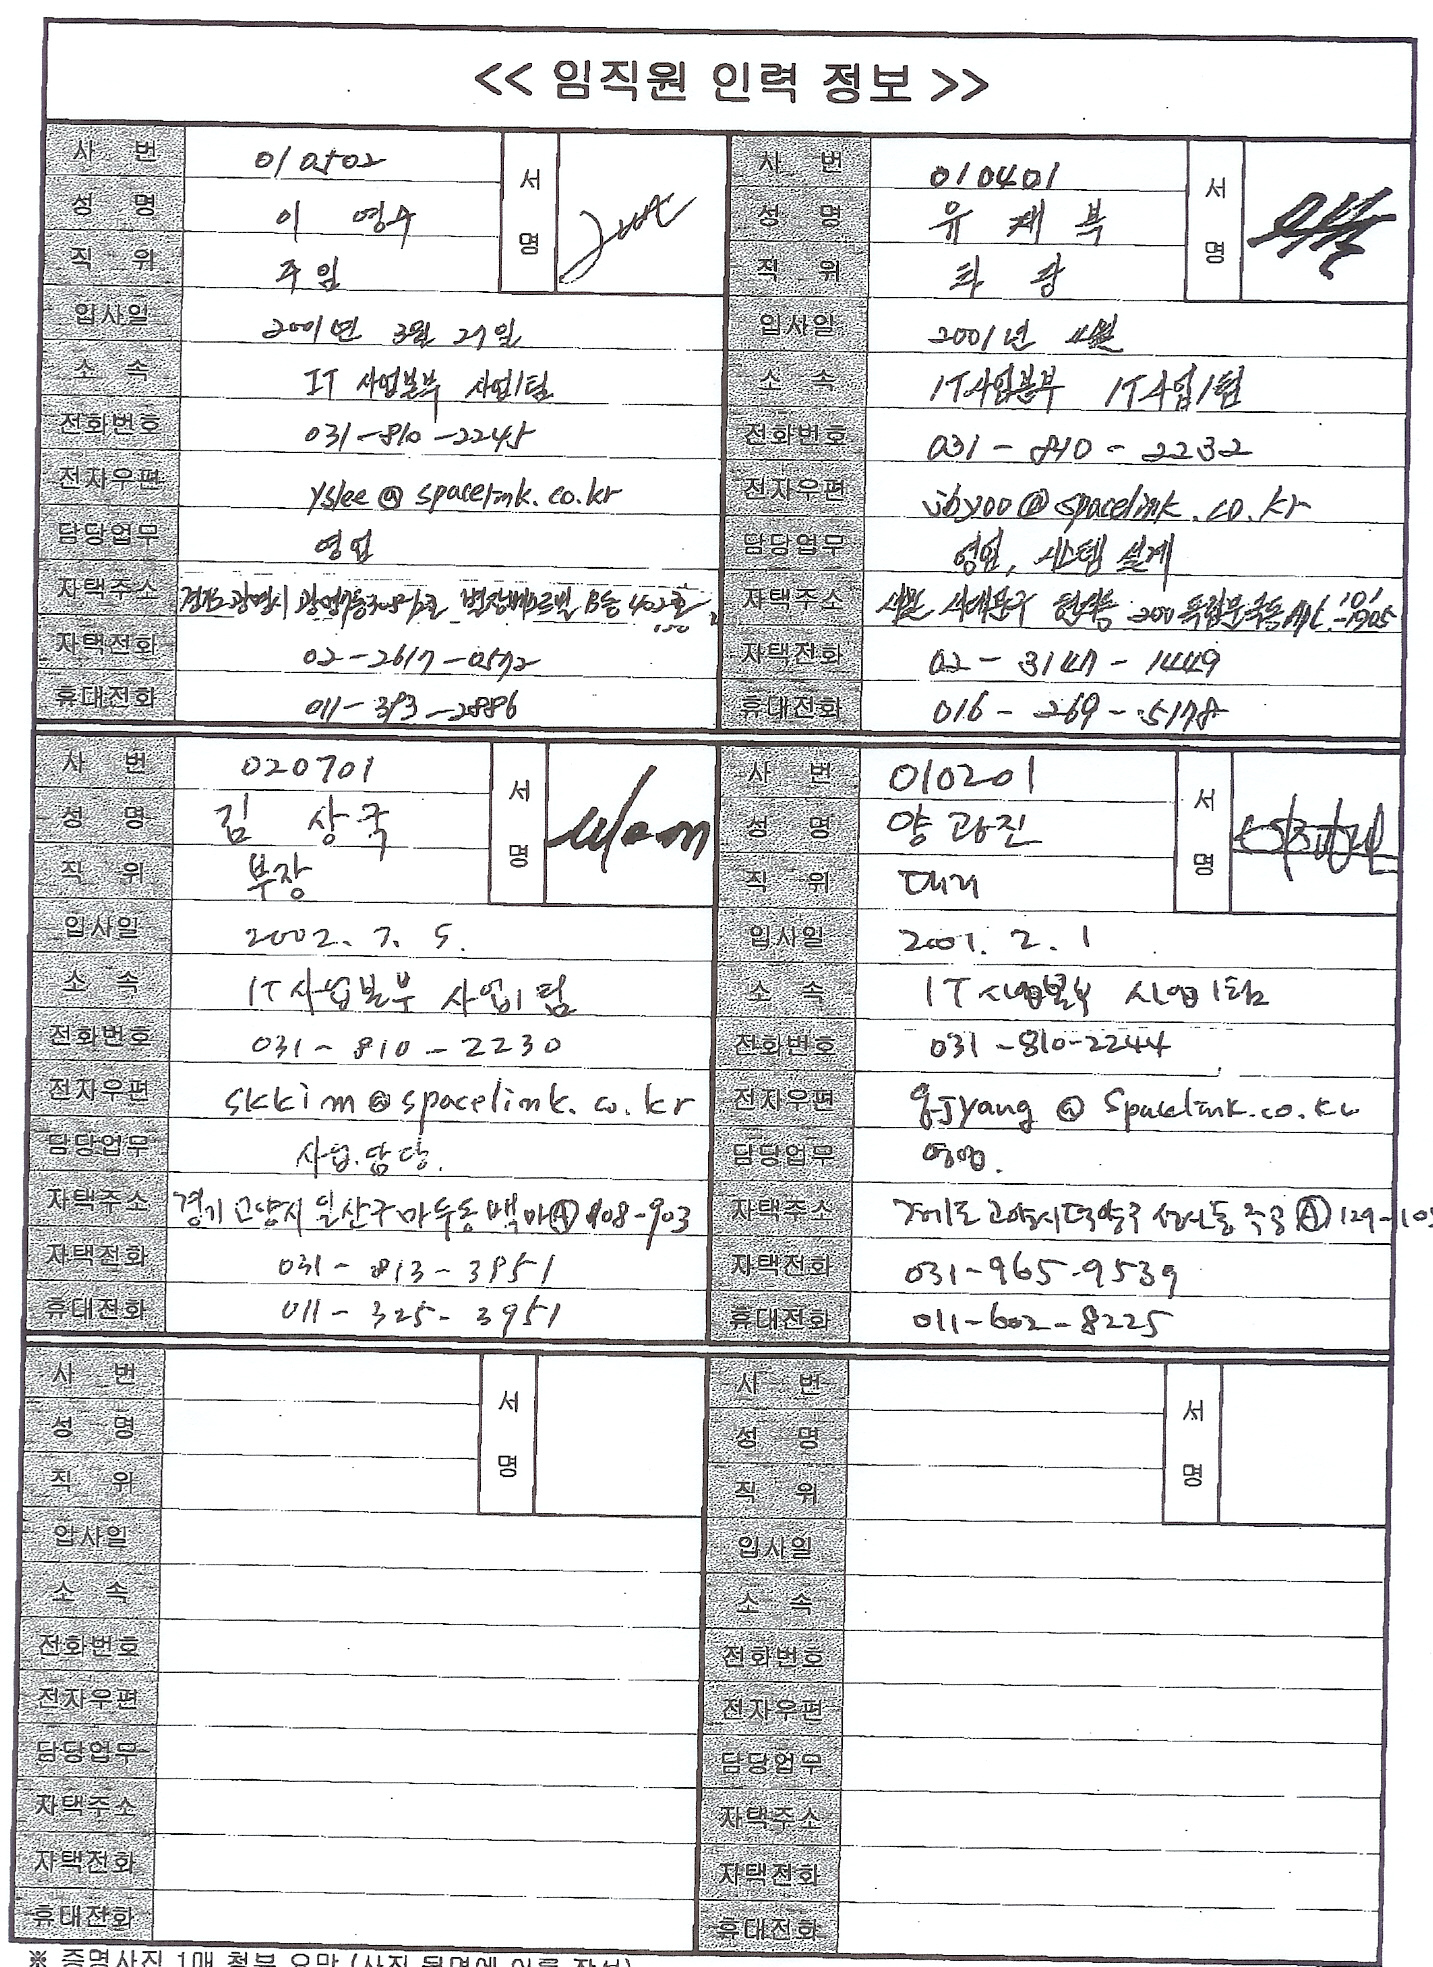 << 임직원 인력 정보 >>
사 번 010502
성 명 이 영수
직 위 주임
서 명
입사일 2001년 3월 27일
소 속 IT 사업본부 사업1팀
전화번호 031-810-2245
전자우편 yslee@spacelink.co.kr
담당업무 영업
자택주소 광명시 B동 402호
자택전화 02-2617-0572
휴대전화 011-393-2886
사 번 010401
성 명 유 재 복
직 위 차 장
서 명
입사일 2001년 4월
소 속 IT사업본부 IT사업1팀
전화번호 031-810-2232
전자우편 jbyoo@spacelink.co.kr
담당업무 영업, 시스템 설계
자택주소 서대문구 현저동 200 독립문극동APT.
자택전화 02-3147-1449
휴대전화 016-269-5178
사 번 020701
성 명 김 상국
직 위 부장
서 명
입사일 2002. 7. 5.
소 속 IT사업본부 사업1팀
전화번호 031-810-2230
전자우편 skkim@spacelink.co.kr
담당업무 사업담당.
자택주소 경기 고양시 일산구 마두동 백마Ⓐ 408-903
자택전화 031-813-3951
휴대전화 011-325-3951
사 번 010201
성 명 양 광진
직 위 대리
서 명
입사일 2001. 2. 1
소 속 IT사업본부 사업1팀
전화번호 031-810-2244
전자우편 gjyang@spacelink.co.kr
담당업무 영업.
자택주소 경기도 고양시 덕양구 성사동 주공Ⓐ
자택전화 031-965-9539
휴대전화 011-602-8225
사 번
성 명
직 위
서 명
입사일
소 속
전화번호
전자우편
담당업무
자택주소
자택전화
휴대전화
사 번
성 명
직 위
서 명
입사일
소 속
전화번호
전자우편
담당업무
자택주소
자택전화
휴대전화
※ 증명사진 1매 첨부 요망 (사진 뒷면에 이름 작성)